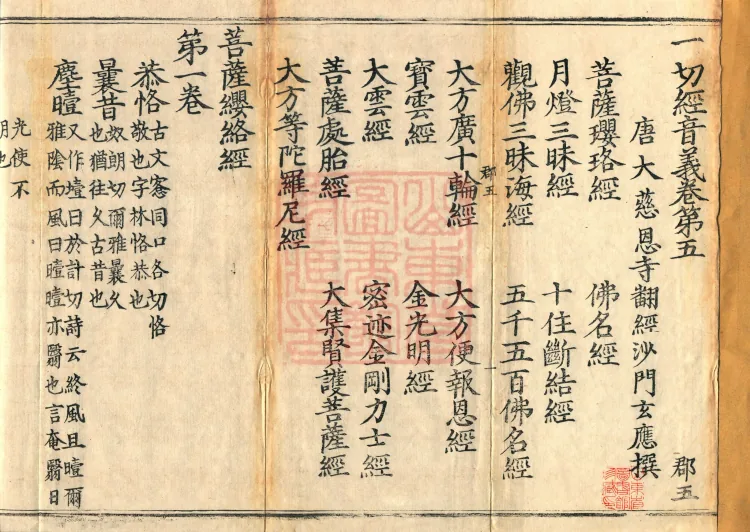 一切經音義卷第五
唐大慈恩寺翻經沙門玄應撰 郡五
菩薩瓔珞經 佛名經
月燈三昧經 十住斷結經
觀佛三昧海經 五千五百佛名經
郡五 一
大方廣十輪經 大方便報恩經
寶雲經 金光明經
大雲經 密迹金剛力士經
菩薩處胎經 大集賢護菩薩經
大方等陀羅尼經
菩薩纓絡經
第一卷
恭恪 古文愙同口各切恪
敬也字林恪恭也
曩昔 奴朗切爾雅曩久
也猶往久古昔也
塵曀 又作壇日於計切詩云終風且曀爾
雅陰而風曰曀曀亦翳也言奄翳日
光使不
明也